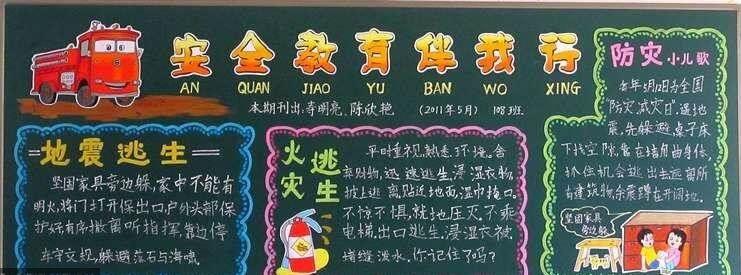 安全教育伴我行
AN QUAN JIAO YU BAN WO XING
本期刊出:李明亮、陈欣艳 (2011年5月) 108班
地震逃生
坚固家具旁边躲,家中不能有
明火,将门打开保出口户外头部保
护好有序撤离听指挥,靠边停
车守交规,躲避落石与海啸。
火灾逃生
平时重视,熟悉环境。舍
弃财物,迅速逃生,浸湿衣物
披上逃离,贴近地面,湿巾掩口。
不惊不惧,就地压灭,不乘
电梯,出口逃生。浸湿衣被
堵缝泼水,你记住了吗?
防灾小儿歌
每年5月12日为全国
“防灾减灾日”。遇地
震,先躲避,桌子床
下找空隙,靠在墙角曲身体,
抓住机会逃出去,远离所
有建筑物,余震蹲在开阔地。
坚固家具
旁边躲